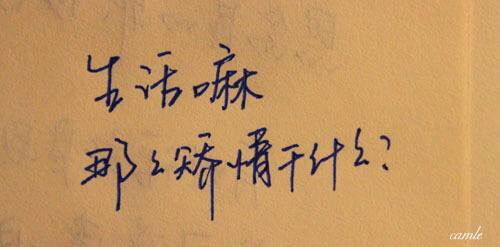 生活嘛
那么矫情干什么?
camle